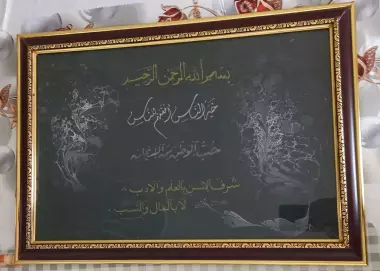 بسم الله الرحمن الرحيم
خير الناس أنفعهم للناس
حب الوطن من الإيمان
شرف الإنسان بالعلم والأدب
لا بالمال والنسب